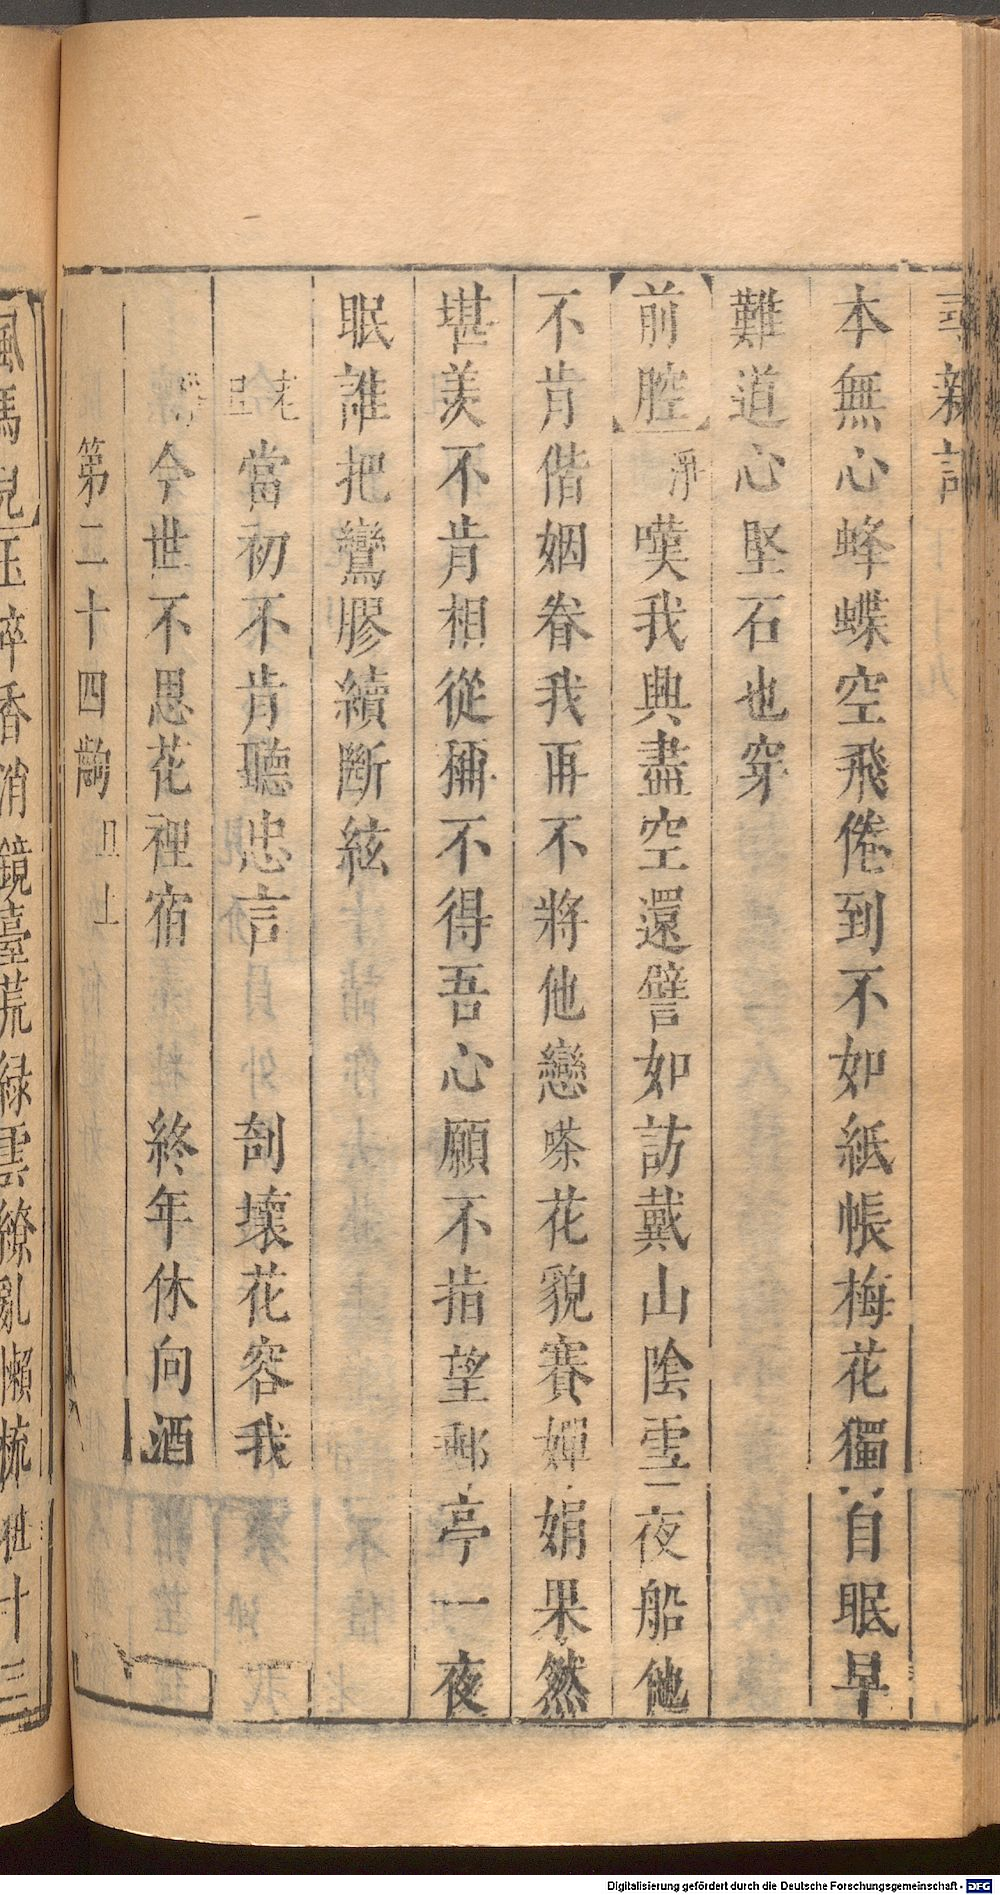 尋新記
本無心蜂蝶空飛倦到不如紙帳梅花獨自眠早
難道心堅石也穿
前腔 淨 嘆我興盡空還譬如訪戴山陰雪夜船他
不肯偕姻眷我再不將他戀嗏花貌賽嬋娟果然
堪羨不肯相從摛不得吾心願不指望郵亭一夜
眠誰把鸞膠續斷絃
當初不肯聽忠言 刮壞花容我
今世不思花裡宿 終年休向酒
第二十四齣 旦上
風馬兒 玉碎香消鏡臺荒綠雲繚亂懶梳
十三
Digitalisierung gefördert durch die Deutsche Forschungsgemeinschaft - DFG